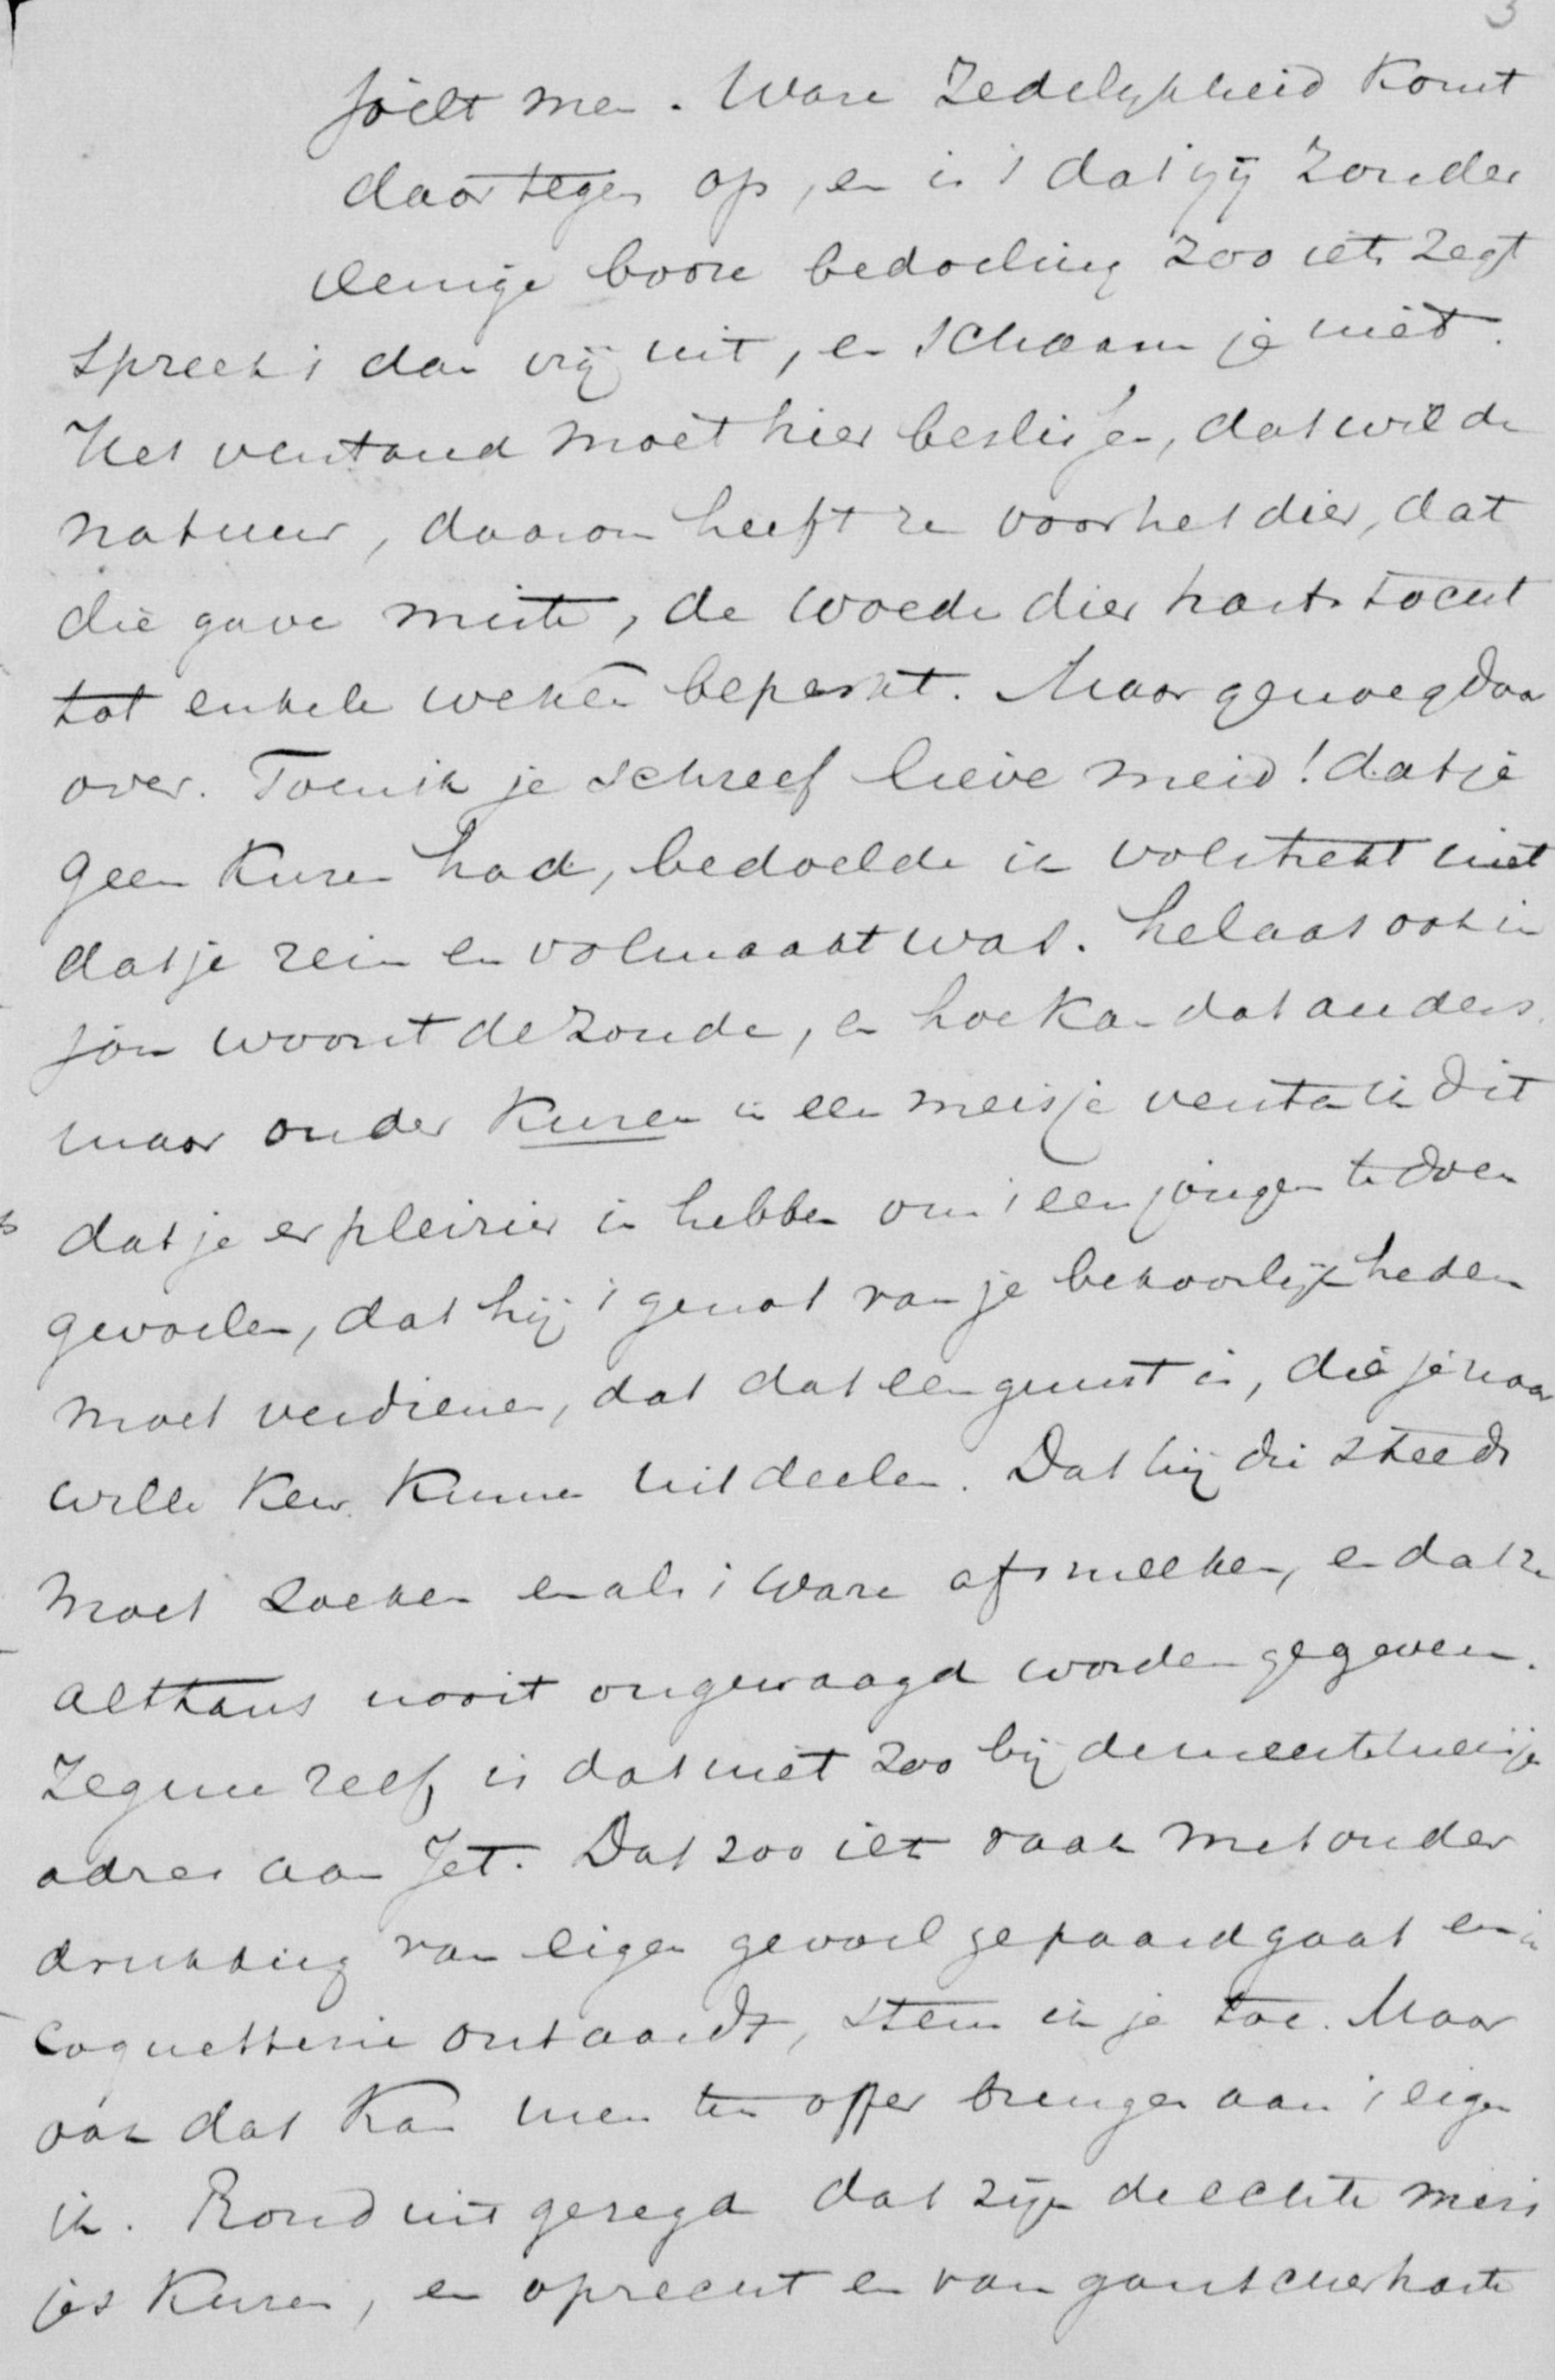 3
foêlt men. Ware Zedelykheid komt
daar tegen op, en is 't dat gij zonder
eenige booze bedoeling zoo iets zegt
spreek 't dan vrij uit, en schaam je niet.
Het verstand moet hier beslissen, dat wil de
natuur, daarom heeft ze voor het dier, dat
die gave miste, de woede dier hartstocht
tot enkele weken beperkt. Maar genoeg daar
over. Toen ik je schreef lieve meid! dat je
geen kuren had, bedoelde ik volstrekt niet
dat je rein en volmaakt was. helaas ook in
jou woont de zonde, en hoe kan dat anders.
maar onder kuren in een meisje versta ik dit
dat je er pleizier in hebben om 't een jongen te doen
gevoelen, dat hij 't genot van je bekoorlijkheden
moet verdienen, dat dat een gunst is, die je naar
willekeur kunnen uitdeelen. Dat hij die steeds
moet zoeken en als 't ware afsmeeken, en dat ze
althans nooit ongevraagd worden gegeven.
Zeg me zelf, is dat niet zoo bij de meeste meisje
adres aan Jet. Dat zoo iets vaak met onder
drukking van eigen gevoel gepaard gaat en in
coquetterie ontaardt, stem ik je toe. Maar
oók dat kan men ten offer brengen aan 't eigen
ik. Ronduit gezegd dat zijn de echte meis
jes kuren, en oprecht en van ganscher harte